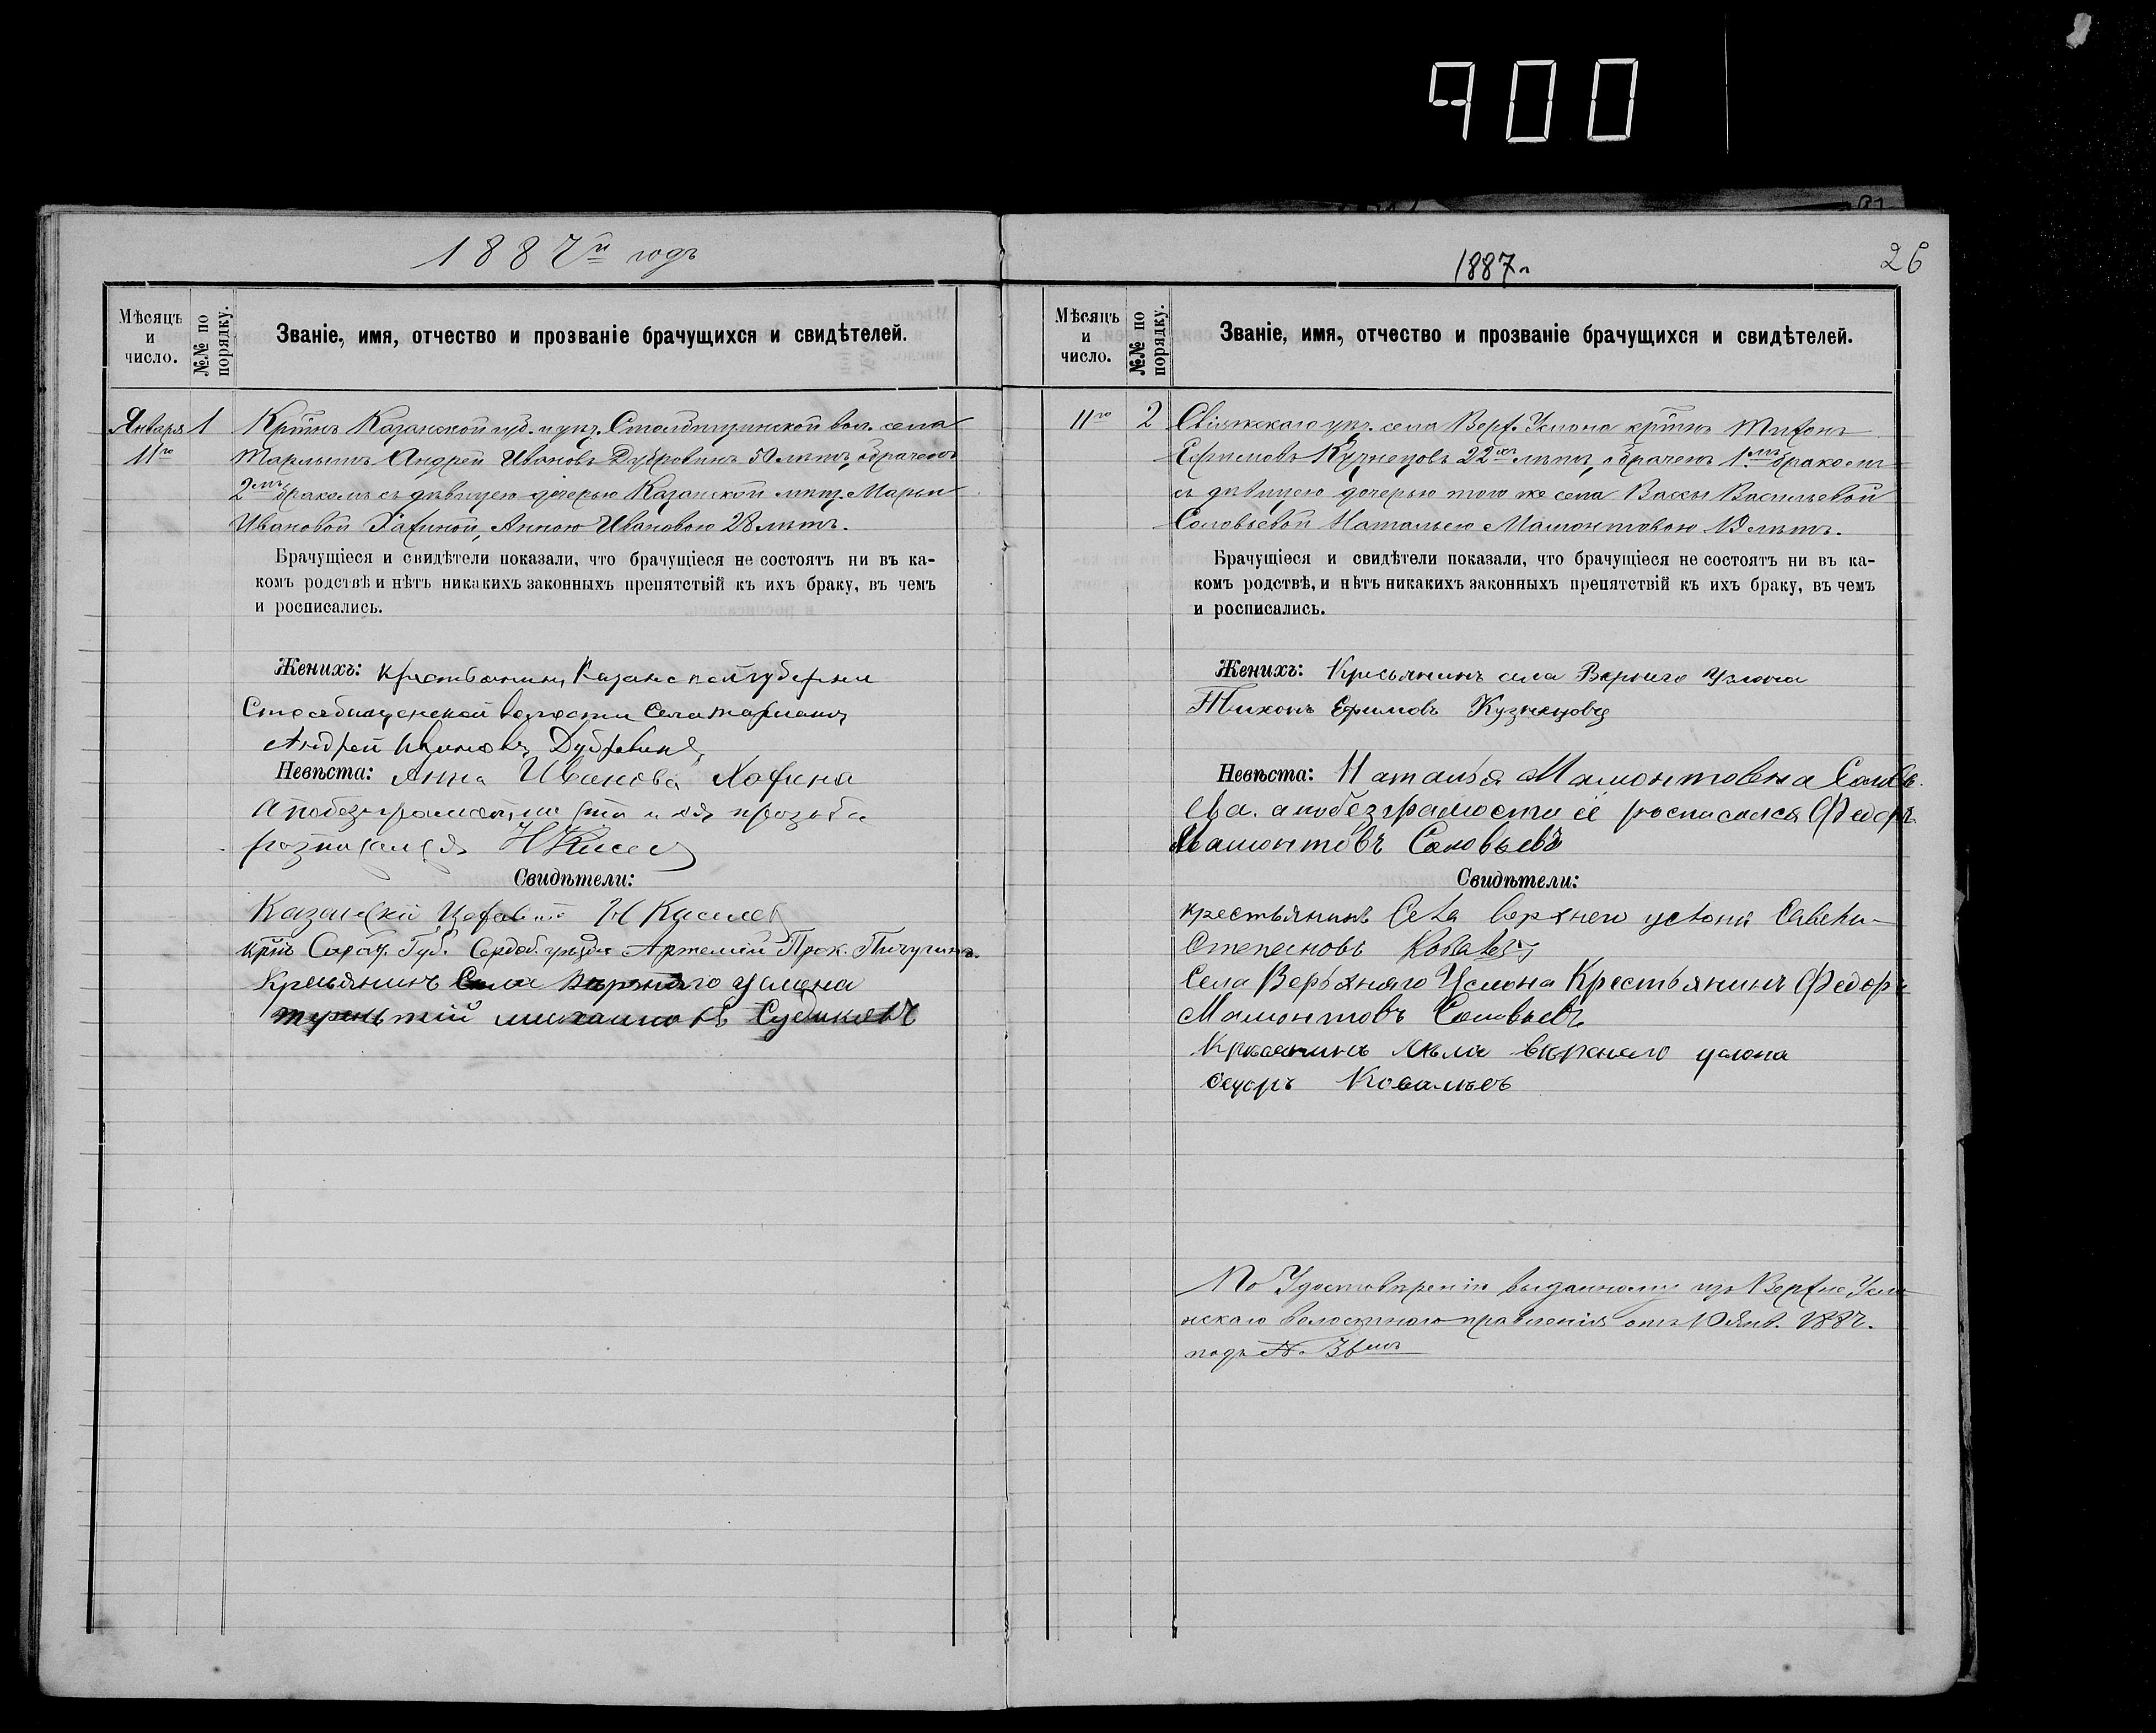 900
1887й годъ
Мѣсяцъ и число.
№№ по порядку.
Званіе, имя, отчество и прозваніе брачущихся и свидѣтелей.
Января 1 Крнинъ Казанской губ. и уѣз. Столбищинской вол. села
11го Тарлышъ Андрей Ивановъ Дубровинъ 50 лѣтъ, обраченъ
2мъ бракомъ съ дѣвицею дочерью Казанской мѣщ. Марьи
Ивановой Хафиной, Анною Ивановою 28 лѣтъ.
Брачущіеся и свидѣтели показали, что брачущіеся не состоятъ ни въ ка-
комъ родствѣ и нѣтъ никакихъ законныхъ препятствій къ ихъ браку, въ чемъ
и росписались.
Женихъ: крестьянинъ Казанской губернии
волости села
Андрей Ивановъ Дубровинъ
Невѣста: Анна Иванова Хафина
Свидѣтели:
Казанскій
крнъ Сарат. Губ. Сердоб. уѣзда Артемій Прок. Пичугинъ.
Кресьянинъ Села верхняго услона
1887 г.
26
Мѣсяцъ и число.
№№ по порядку.
Званіе, имя, отчество и прозваніе брачущихся и свидѣтелей.
11го 2 Свіяжскаго уѣз. села Верх. Услона крнинъ Тихонъ
Ефимовъ Кузнецовъ 22хъ лѣтъ, обраченъ 1.мъ бракомъ
съ дѣвицею дочерью того же села Вассы Васильевой
Соловьевой Натальею Мамонтовою 19 лѣтъ.
Брачущіеся и свидѣтели показали, что брачущіеся не состоятъ ни въ ка-
комъ родствѣ, и нѣтъ никакихъ законныхъ препятствій къ ихъ браку, въ чемъ
и росписались.
Женихъ: Кресьянинъ села Верниго Услона
Тихонъ Ефимовъ Кузнецовъ
Невѣста: Наталья Мамонтовна Соловь
ева. а по безграмости ее росписался Федоръ
Мамонтовъ Соловьевъ
Свидѣтели:
крестьянинъ Села верхнего услона Савели
Степановъ Ковалевъ
Села Верьхняго Услона Крестьянинъ Федоръ
Мамонтовъ Соловьевъ
услона
Ковальевъ
По Удостовѣренію выданному изъ Верхне Усло
нскаго волостного правленія отъ 10 Янв. 1887.
подъ №